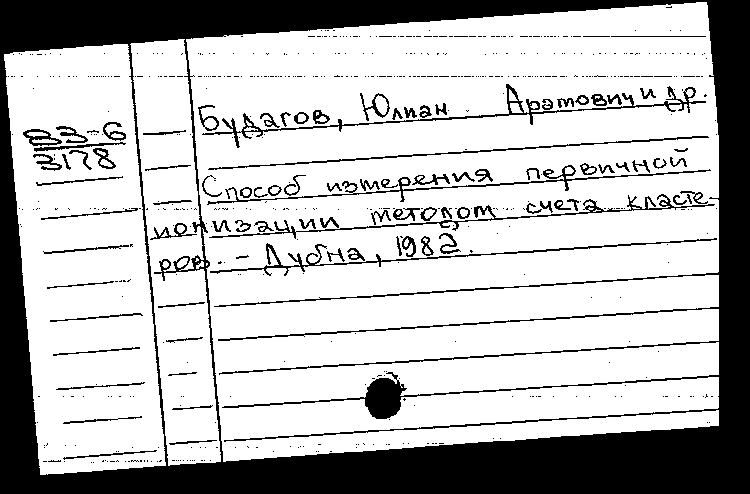 Будагов, Юлиан Арамович и др.
33-6
3178
Способ измерения первичной
ионизации методом счета класте-
ров. - Дубна, 1982.